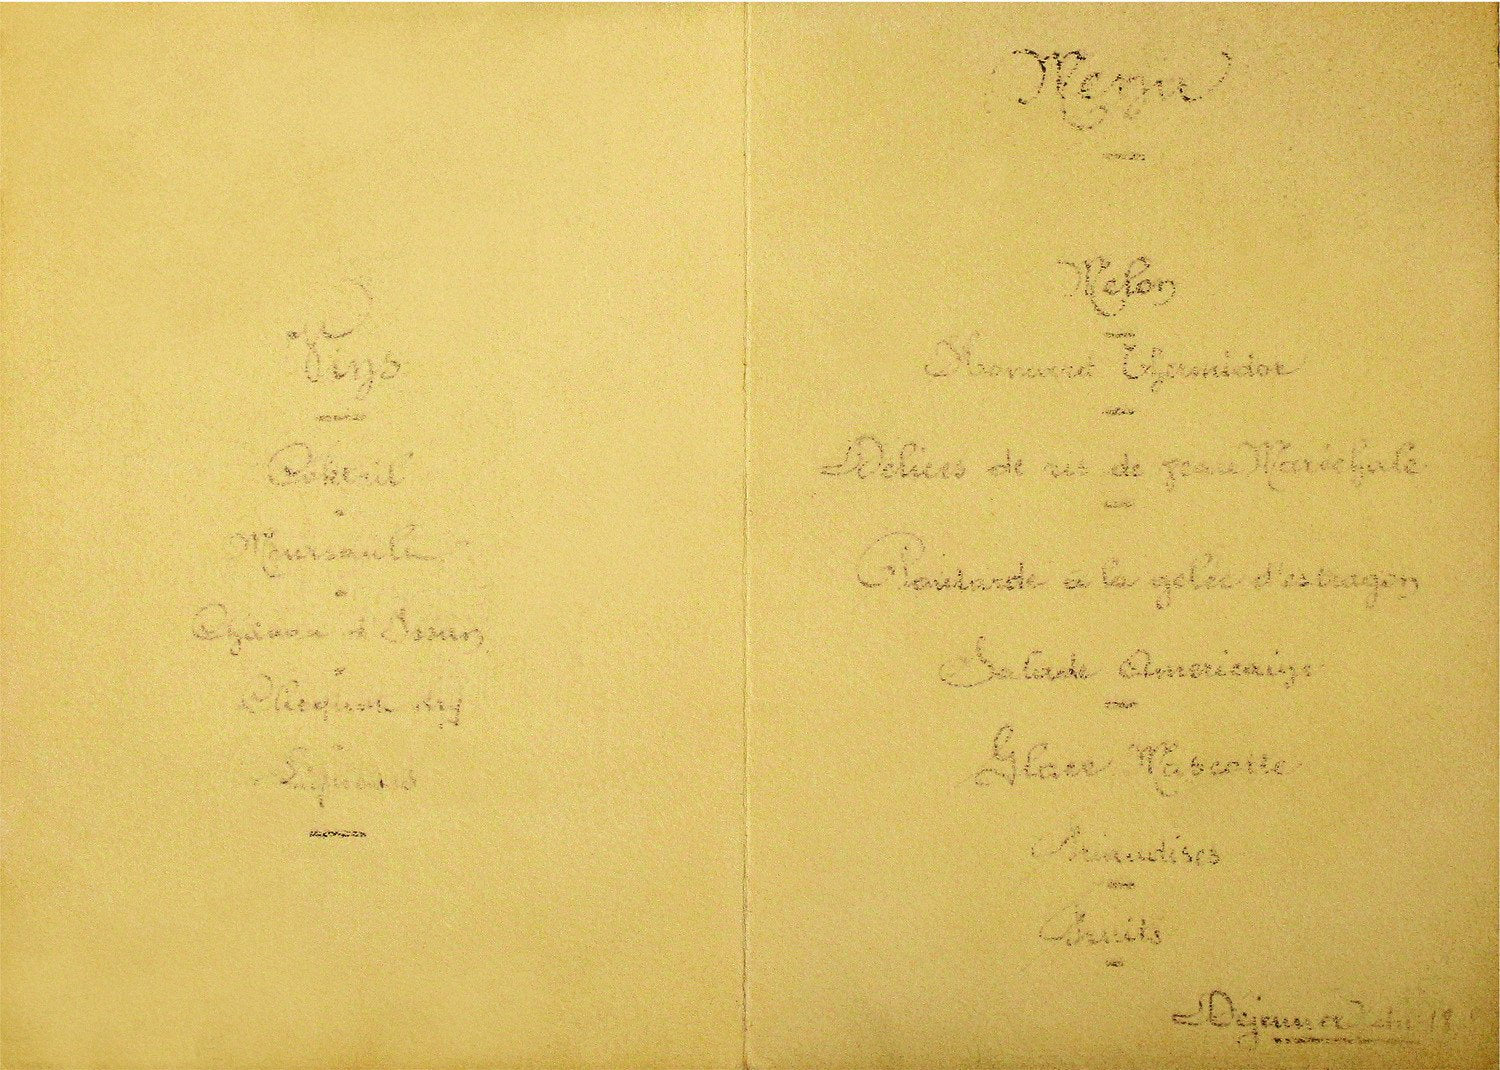 Vins
Meursault
Liqueurs
Menu
Melon
Homard Thermidor
Délices de ris de veau Maréchale
Poularde à la gelée d'estragon
Salade Américaine
Glace Mascotte
Friandises
Fruits
Déjeuner du